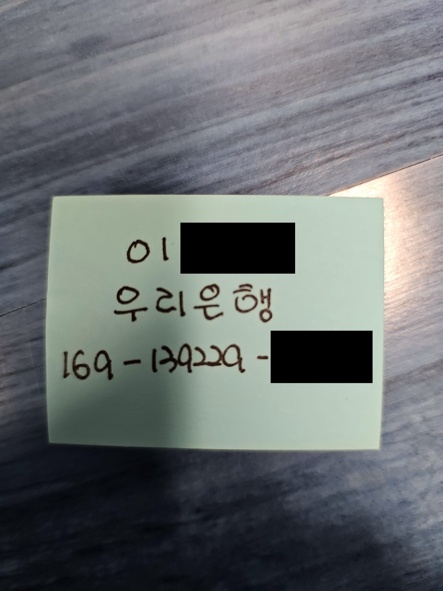 이
우리은행
169-139229-